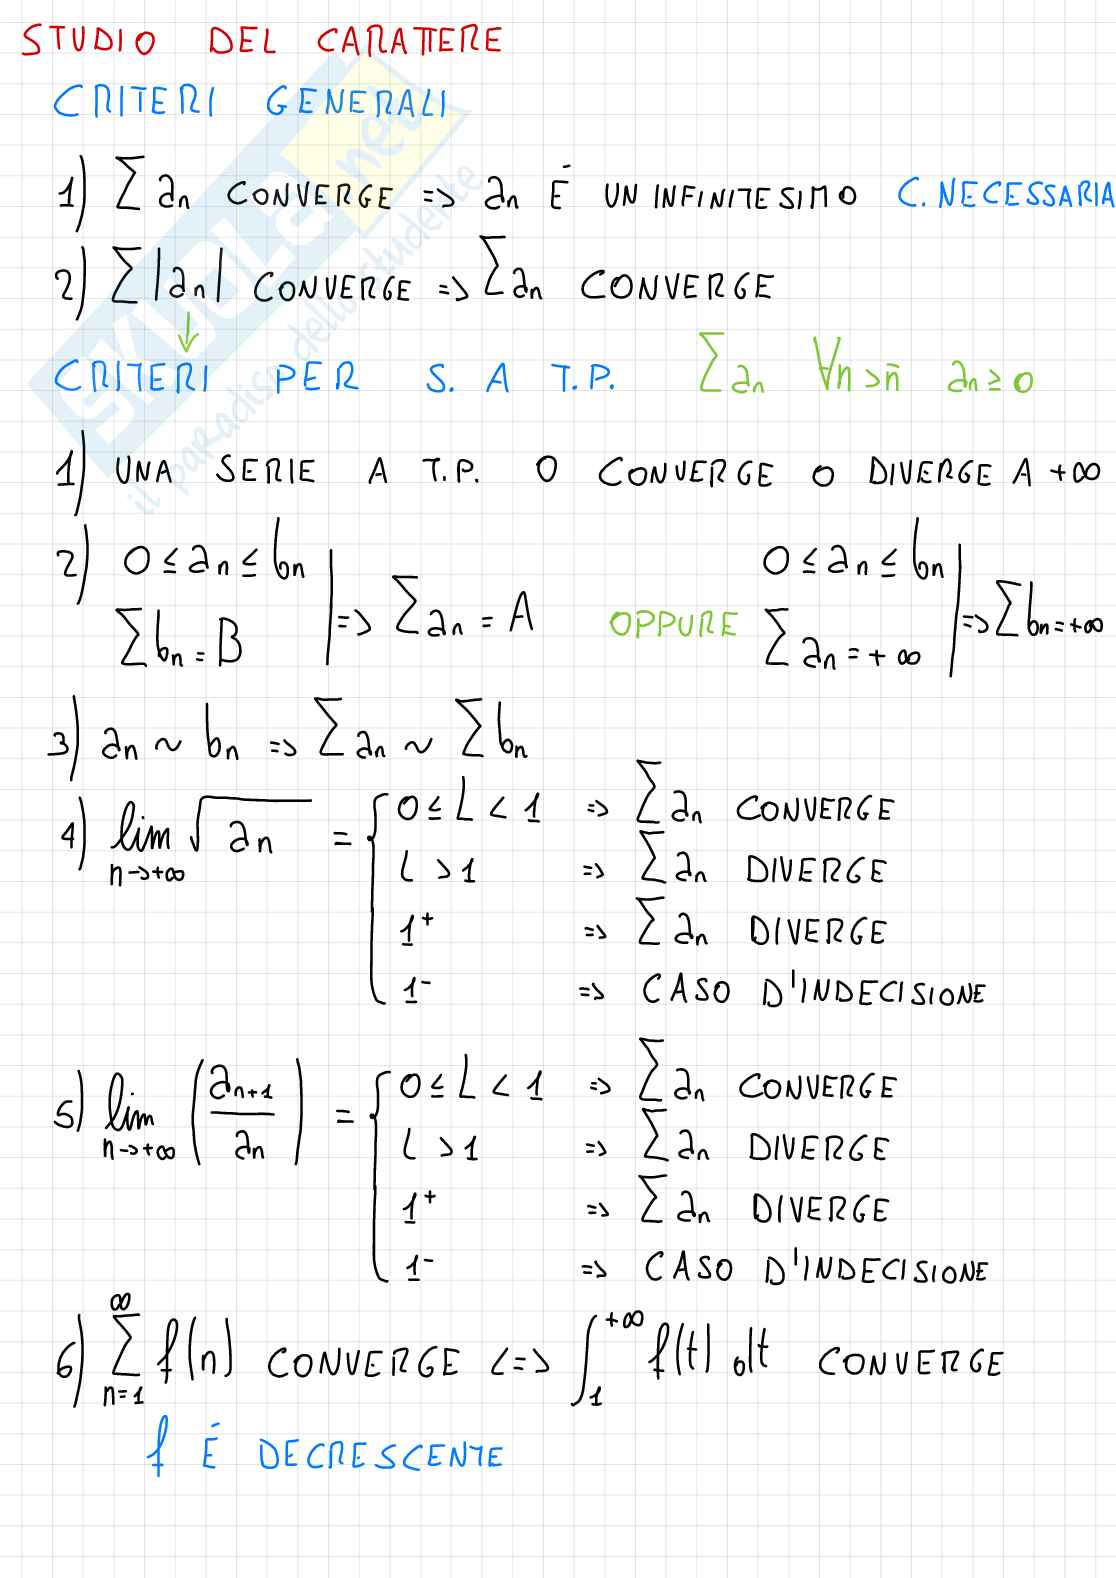 STUDIO DEL CARATTERE
CRITERI GENERALI
1) ∑ an CONVERGE => an É UN INFINITESIMO C. NECESSARIA
2) ∑ |an| CONVERGE => ∑ an CONVERGE
↓
CRITERI PER S. A T.P. ∑ an ∀n > n̄ an ≥ 0
1) UNA SERIE A T.P. O CONVERGE O DIVERGE A +∞
2) 0 ≤ an ≤ bn ∑ bn = B | => ∑ an = A OPPURE 0 ≤ an ≤ bn ∑ an = +∞ | => ∑ bn = +∞
3) an ~ bn => ∑ an ~ ∑ bn
4) lim n->+∞ √an = { 0 ≤ L < 1 => ∑ an CONVERGE
L > 1 => ∑ an DIVERGE
1⁺ => ∑ an DIVERGE
1⁻ => CASO D'INDECISIONE
5) lim n->+∞ (an+1 / an) = { 0 ≤ L < 1 => ∑ an CONVERGE
L > 1 => ∑ an DIVERGE
1⁺ => ∑ an DIVERGE
1⁻ => CASO D'INDECISIONE
6) ∞ ∑ n=1 f(n) CONVERGE <=> ∫ 1 +∞ f(t) dt CONVERGE
f É DECRESCENTE
SKUOLA.net
il paradiso dello studente